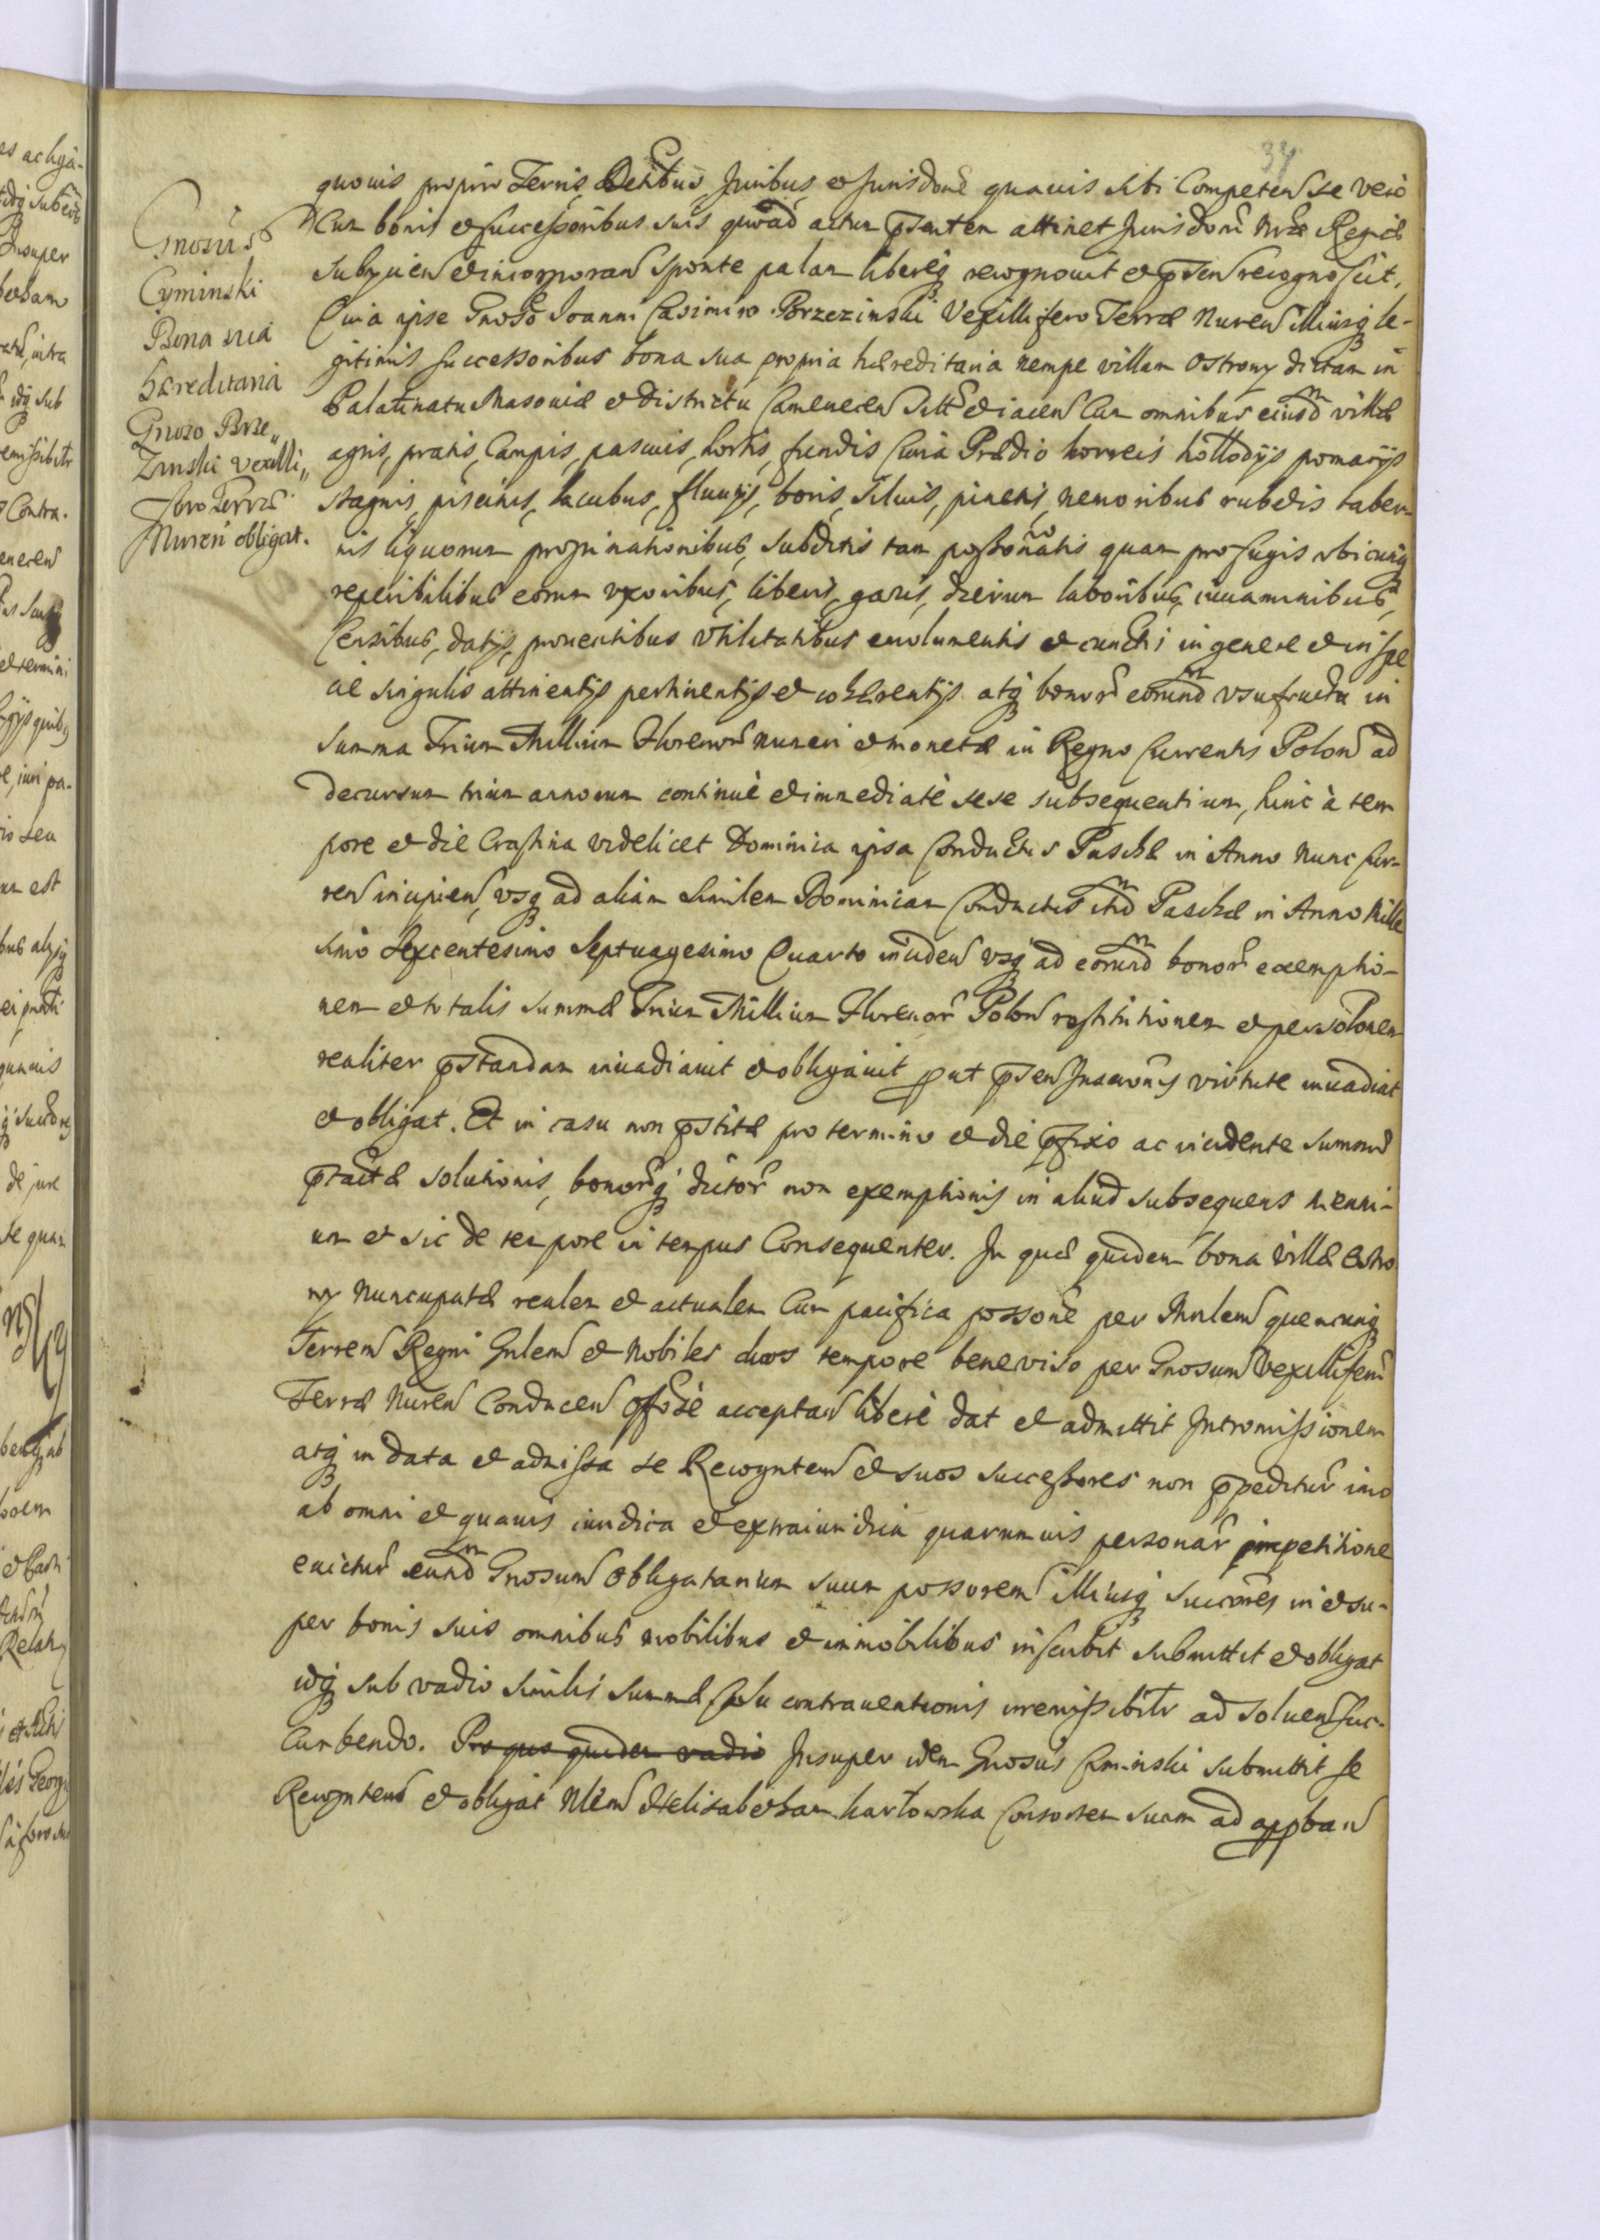 34
Gnosus
Cyminski
Bona sua
hæreditaria
Gnoso Brze„
zinski vexilli„
fero Terræ
Nuren obligat.
quovis proprio Terris, Juribus et Jurisdone quavis sibi Competen se vero
Cum bonis et successoribus suis quoad actum pսntem attinet Jurisdoni Nræ Regiæ
Subyicien et incorporan sponte palam libereq recognouit et psen recognoscit,
Quia ipse Gnoso Joanni Casimiro Brzezinski Vexillifero Terræ Nuren illiusq le-
gitimis successoribus bona sua propria hæreditaria nempe villam Ostrony dictam in
Palatinatu Masouiæ et districtu Camenecen sitt et iacen Cum omnibus eiusd villæ
agris, pratis, Campis, pascuis, hortis, fundis Curia Prædio horreis pomarijs
stagnis, piscinis, lacubus, fluuijs, boris, siluis, pinetis, nemoribus rubetis taber-
nis liquorum propinationibus, subditis tam possonatis quam profugis vbicunq
reperibilibus eorum vxoribus, liberis, gazis, dierum laboribus, iuuaminibus,
Censibus, datijs, prouentibus vtilitatibus emolumentis et cunctis in genere et in spe
cie singulis attinentijs pertinentijs et cohærentijs atq bonor eorund vsufructu in
summa Trium Millium Florenor numeri et monetæ in Regno Currentis Polon ad
decursum trium annorum continuè et immediatè sese subsequentium, hinc à tem
pore et die Crastina videlicet Dominica ipsa Conductus Paschæ in Anno nunc Cur-
ren incipien, vsq ad aliam similem Dominicam Conductus itid Paschæ in Anno Mille
simo Sexcentesimo Septuagesimo Quarto inciden vsq ad eorund bonor exemptio-
nem et totalis summæ Trium Millium Florenor Polon restitutionem et persolonem
realiter pstandam inuadiauit et obligauit put psen Inscronis virtute inuadiat
et obligat. Et in casu non pstitæ pro termino et die pfixo ac incidente summæ
ptactæ solutionis, bonorq dictor non exemptionis in aliud subsequens trienni-
um et sic de tempore in tempus Consequenter. In quæ quidem bona villæ Ostro
ny nuncupatæ realem et actualem Cum pacifica possone per Mnlem quemcunq
Terren Regni Gnlem et Nobiles duos tempore beneviso per Gnosum Vexillifem
Terræ Nuren Conducen acceptan liberè dat et admittit Intromissionem
atq in data et admissa se Recognten et suos successores non ppeditur imo
ab omni et quauis iuridica et extraiuridica quarumuis personar impetitione
euictur eund Gnosum Obligatarium suum possorem illiusq succores in et su-
per bonis suis omnibus mobilibus et immobilibus inscribit submittit et obligat
idq sub vadio similis summæ contrauentionis irremissibilr ad soluen suc-
Cumbendo. Pro quo quidem vadio Insuper idem Gnosus Cminski submittit se
Recognten et obligat Nlem Helisabetham Karlowska Consortem suam ad appban